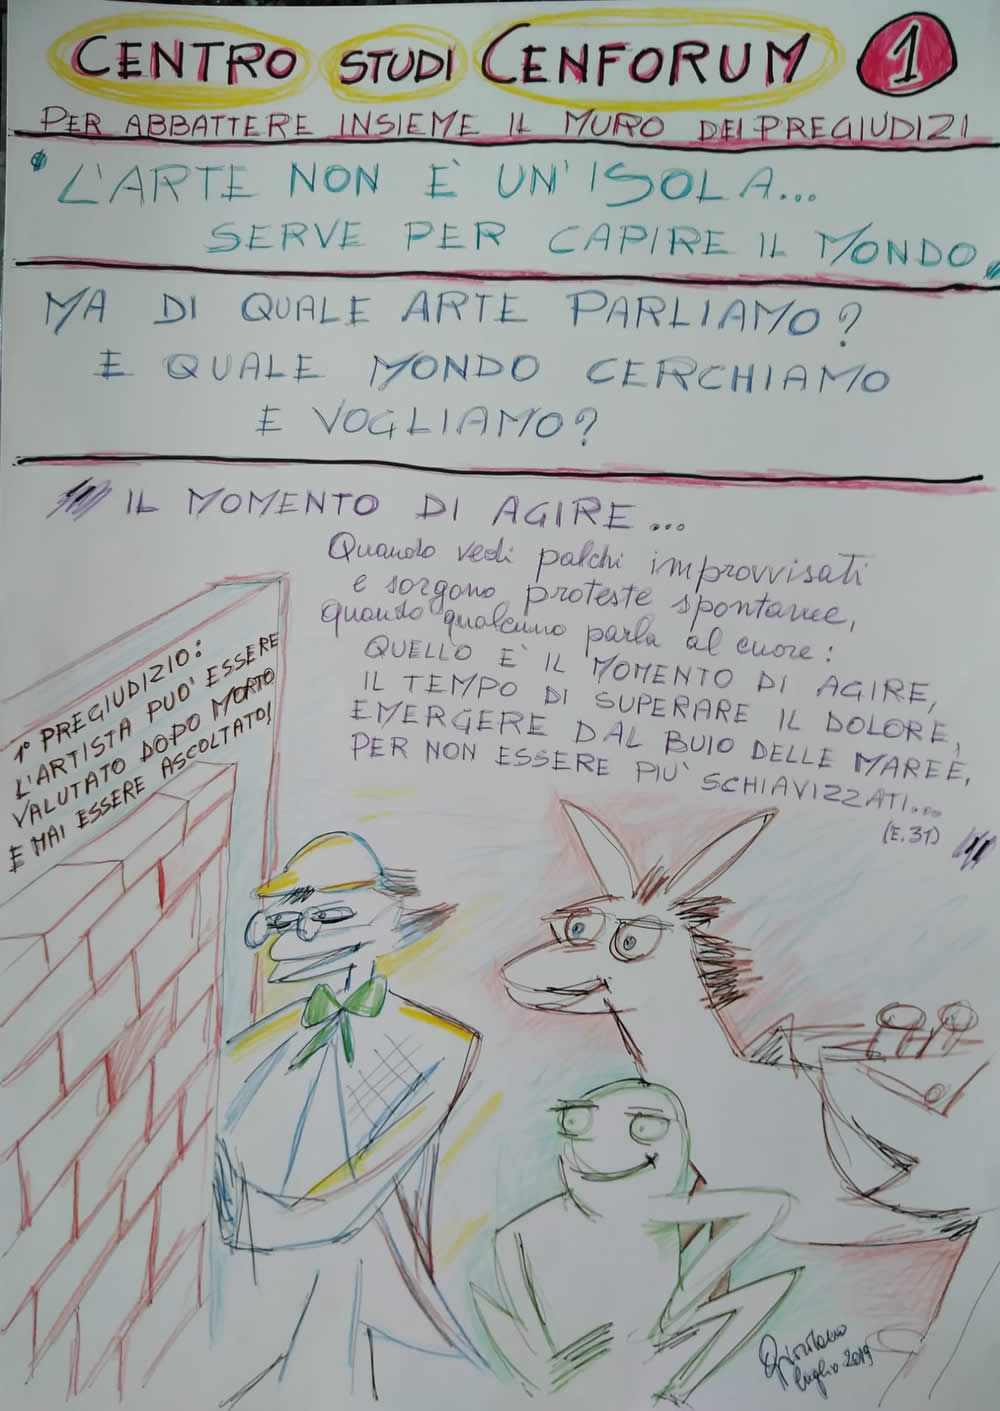 CENTRO STUDI CENFORUM 1
PER ABBATTERE INSIEME IL MURO DEI PREGIUDIZI
"L'ARTE NON È UN'ISOLA...
SERVE PER CAPIRE IL MONDO"
MA DI QUALE ARTE PARLIAMO?
E QUALE MONDO CERCHIAMO
E VOGLIAMO?
IL MOMENTO DI AGIRE...
Quando vedi palchi improvvisati
e sorgono proteste spontanee,
quando qualcuno parla al cuore:
QUELLO È IL MOMENTO DI AGIRE,
IL TEMPO DI SUPERARE IL DOLORE,
EMERGERE DAL BUIO DELLE MAREE,
PER NON ESSERE PIÙ SCHIAVIZZATI...
(E.31)
1° PREGIUDIZIO:
L'ARTISTA PUO' ESSERE
VALUTATO DOPO MORTO
E MAI ESSERE ASCOLTATO!
luglio 2019